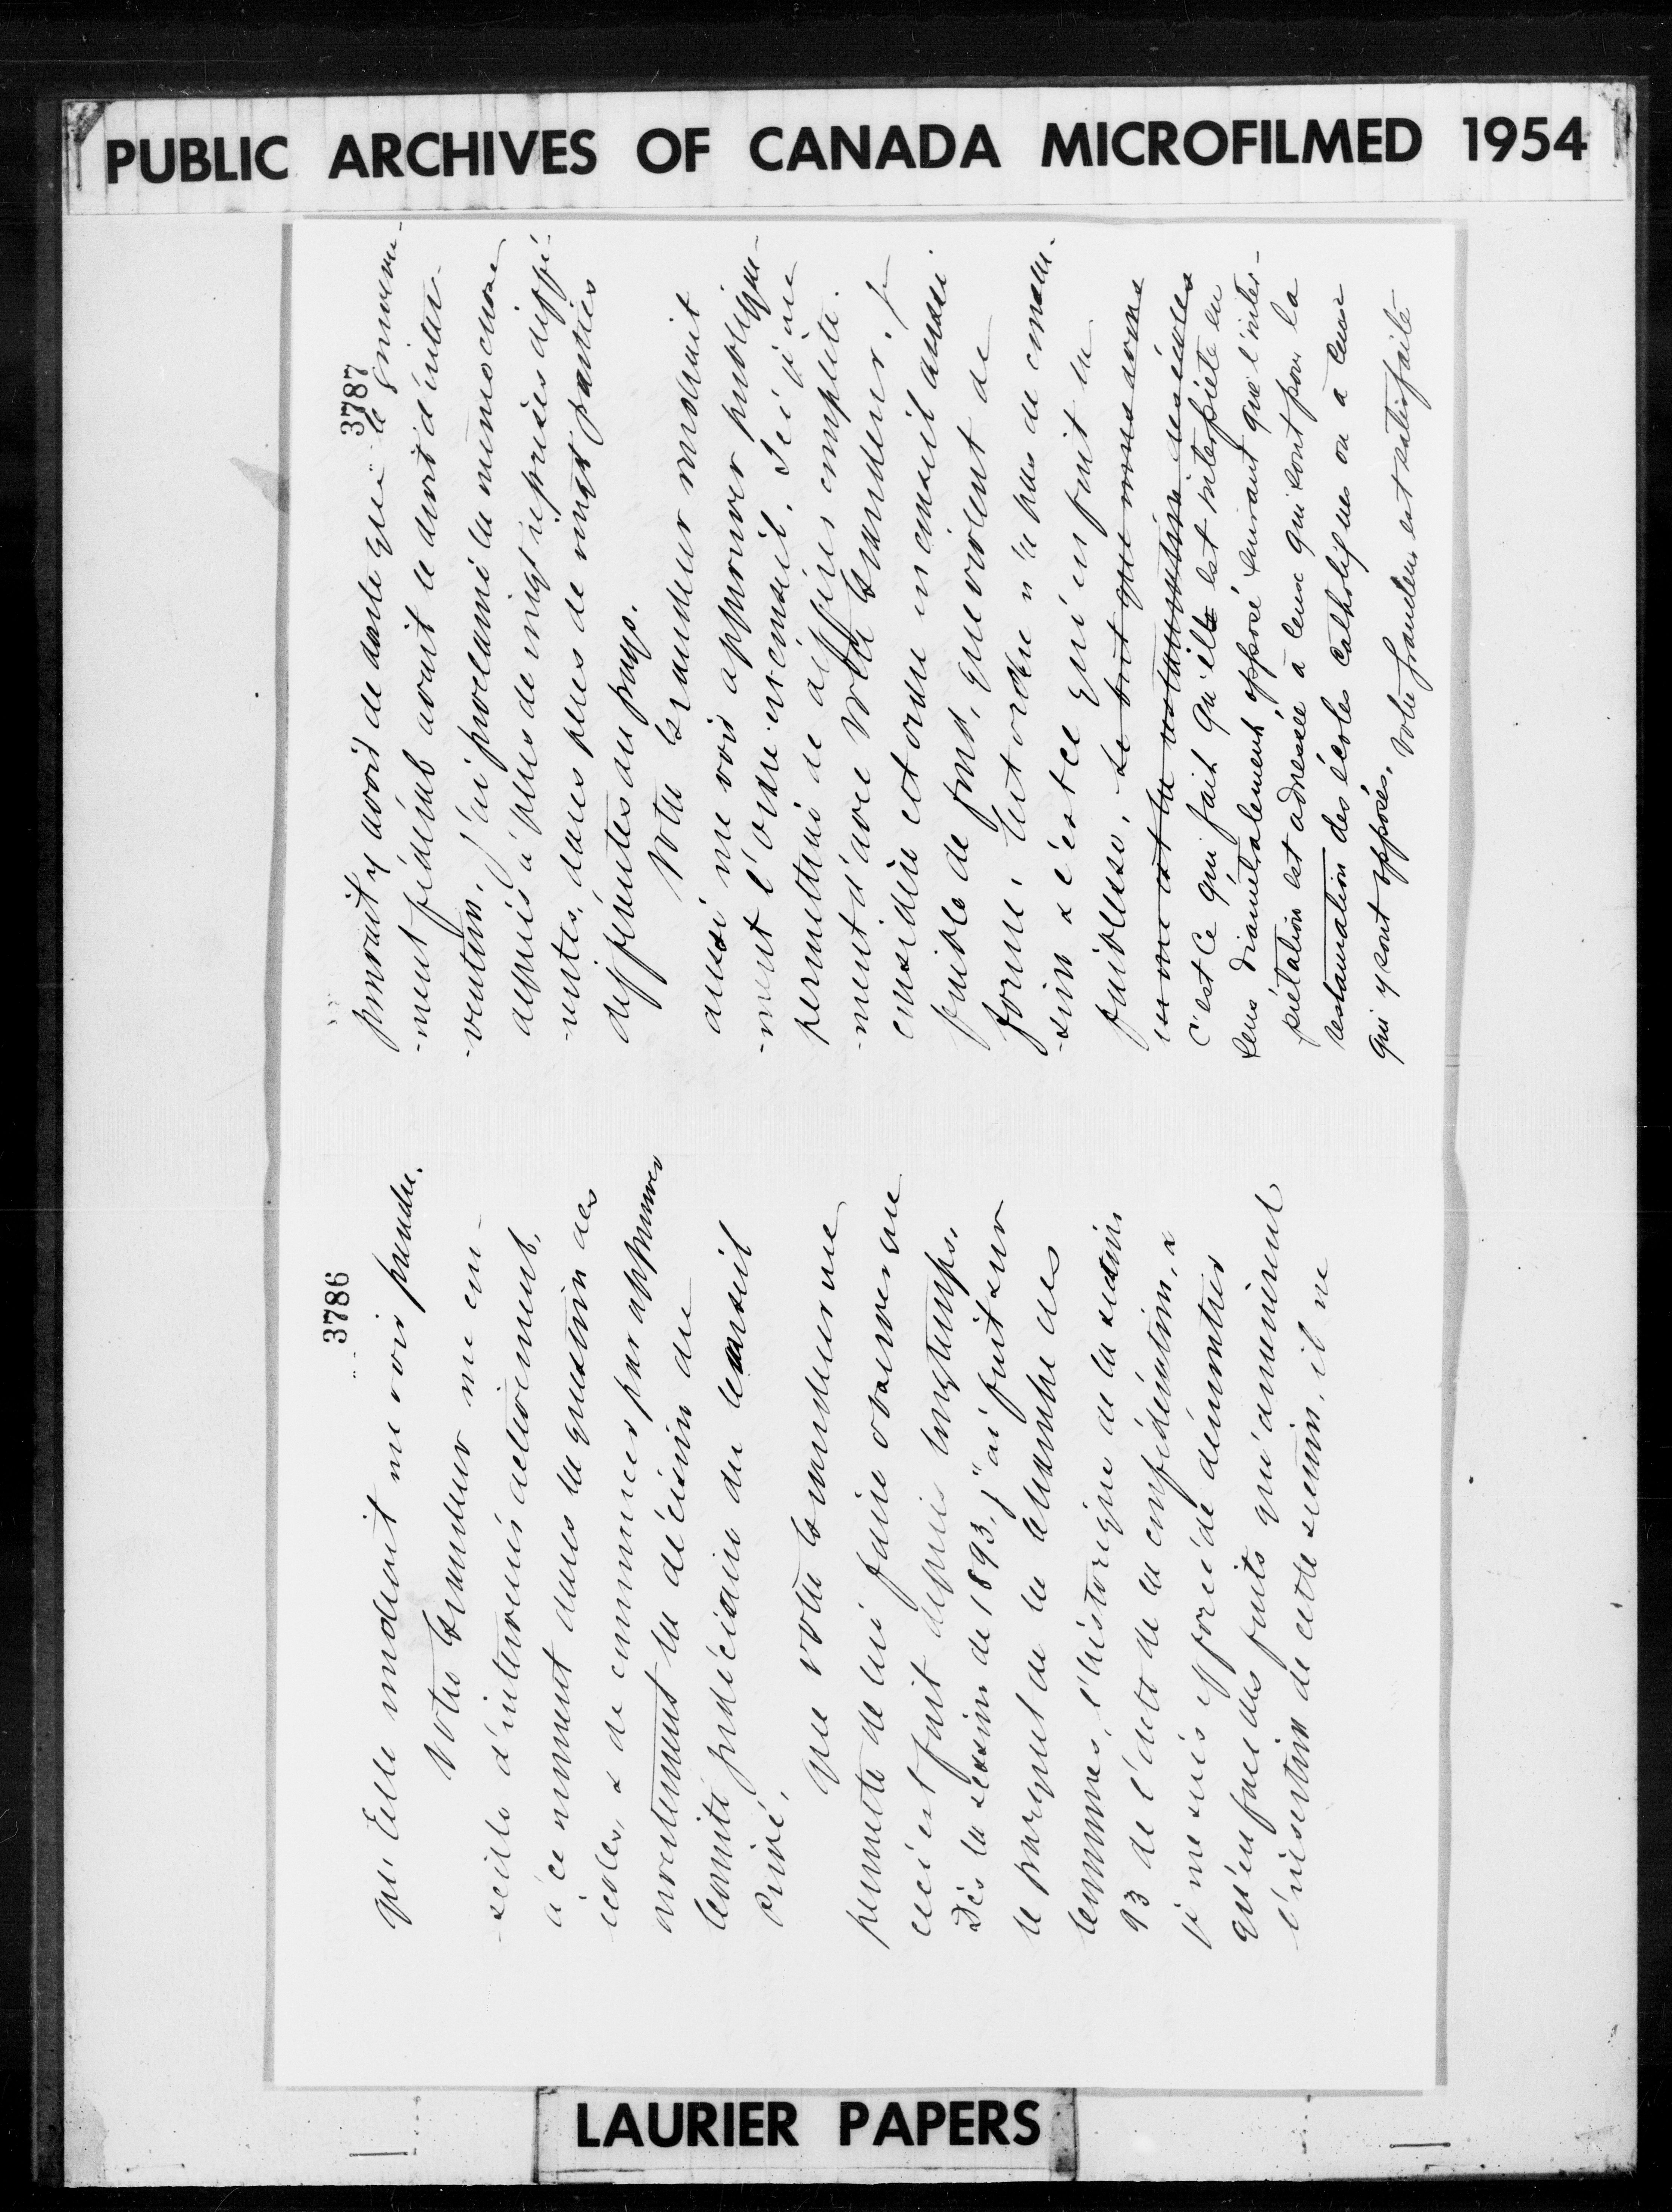 PUBLIC ARCHIVES OF CANADA MICROFILMED 1954
3786
qu'Elle voudrait me voir prendre.
Votre Grandeur me con-
-seille d'intervenir activement,
à ce moment dans la question des
écoles, & de commencer par approuver
ouvertement la décision du
Comité judiciaire du Conseil
Privé.
Que votre Grandeur me
permette de lui faire observer que
ceci est fait depuis longtemps.
Dès la session de 1893, j'ai fait sur
le parquet de la Chambre des
Communes, l'historique de la section
93 de l'acte de la confédération, &
je me suis efforcé de démontrer
qu'en face des faits qui amenèrent
l'insertion de cette section, il ne
3787
pouvait y avoir de doute que le gouverne-
-ment fédéral avait le droit d'inter-
-vention. J'ai proclamé la même chose
depuis à plus de vingt reprises diffé-
-rentes, dans plus de vingt parties
différentes du pays.
Votre Grandeur voudrait
aussi me voir approuver publique-
-ment l'ordre en conseil. Ici je me
permettrai de différer complète-
-ment d'avec Votre Grandeur. Je
considère cet ordre en conseil aussi
faible de fond, que violent de
forme. Cet ordre n'a pas de conclu-
-sion & c'est ce qui en fait la
faiblesse. Le but que nous avons
en vue est la restauration des écoles
C'est ce qui fait qu'elle est interprétée en
sens diamétralement opposé suivant que l'inter-
prétation est adressée à ceux qui sont pour la
restauration des écoles catholiques ou à ceux
qui y sont opposés. Votre grandeur est satisfaite
LAURIER PAPERS